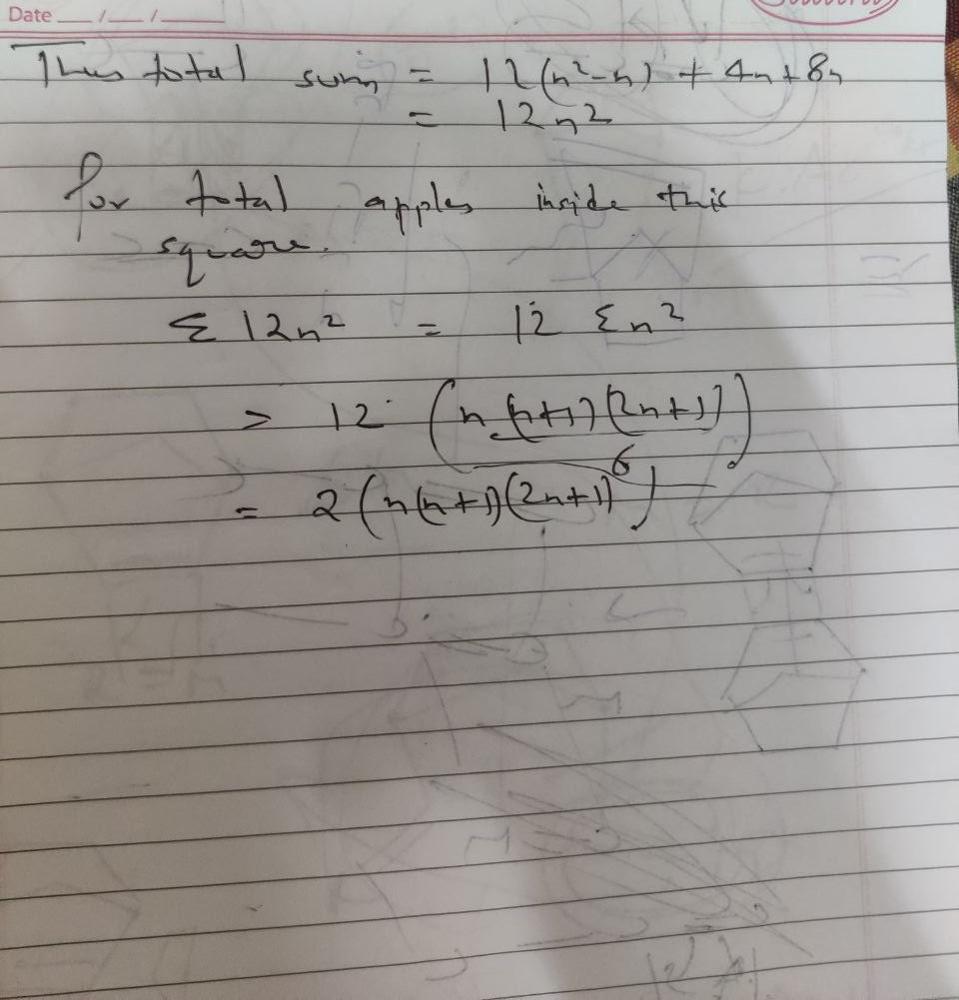 Date __/__/____
Thus total sum = 12(n²-n) + 4n+8n
= 12n²
for total apples inside this
square.
Σ 12n² = 12 Σn²
= 12 (n(n+1)(2n+1)/6)
= 2(n(n+1)(2n+1))